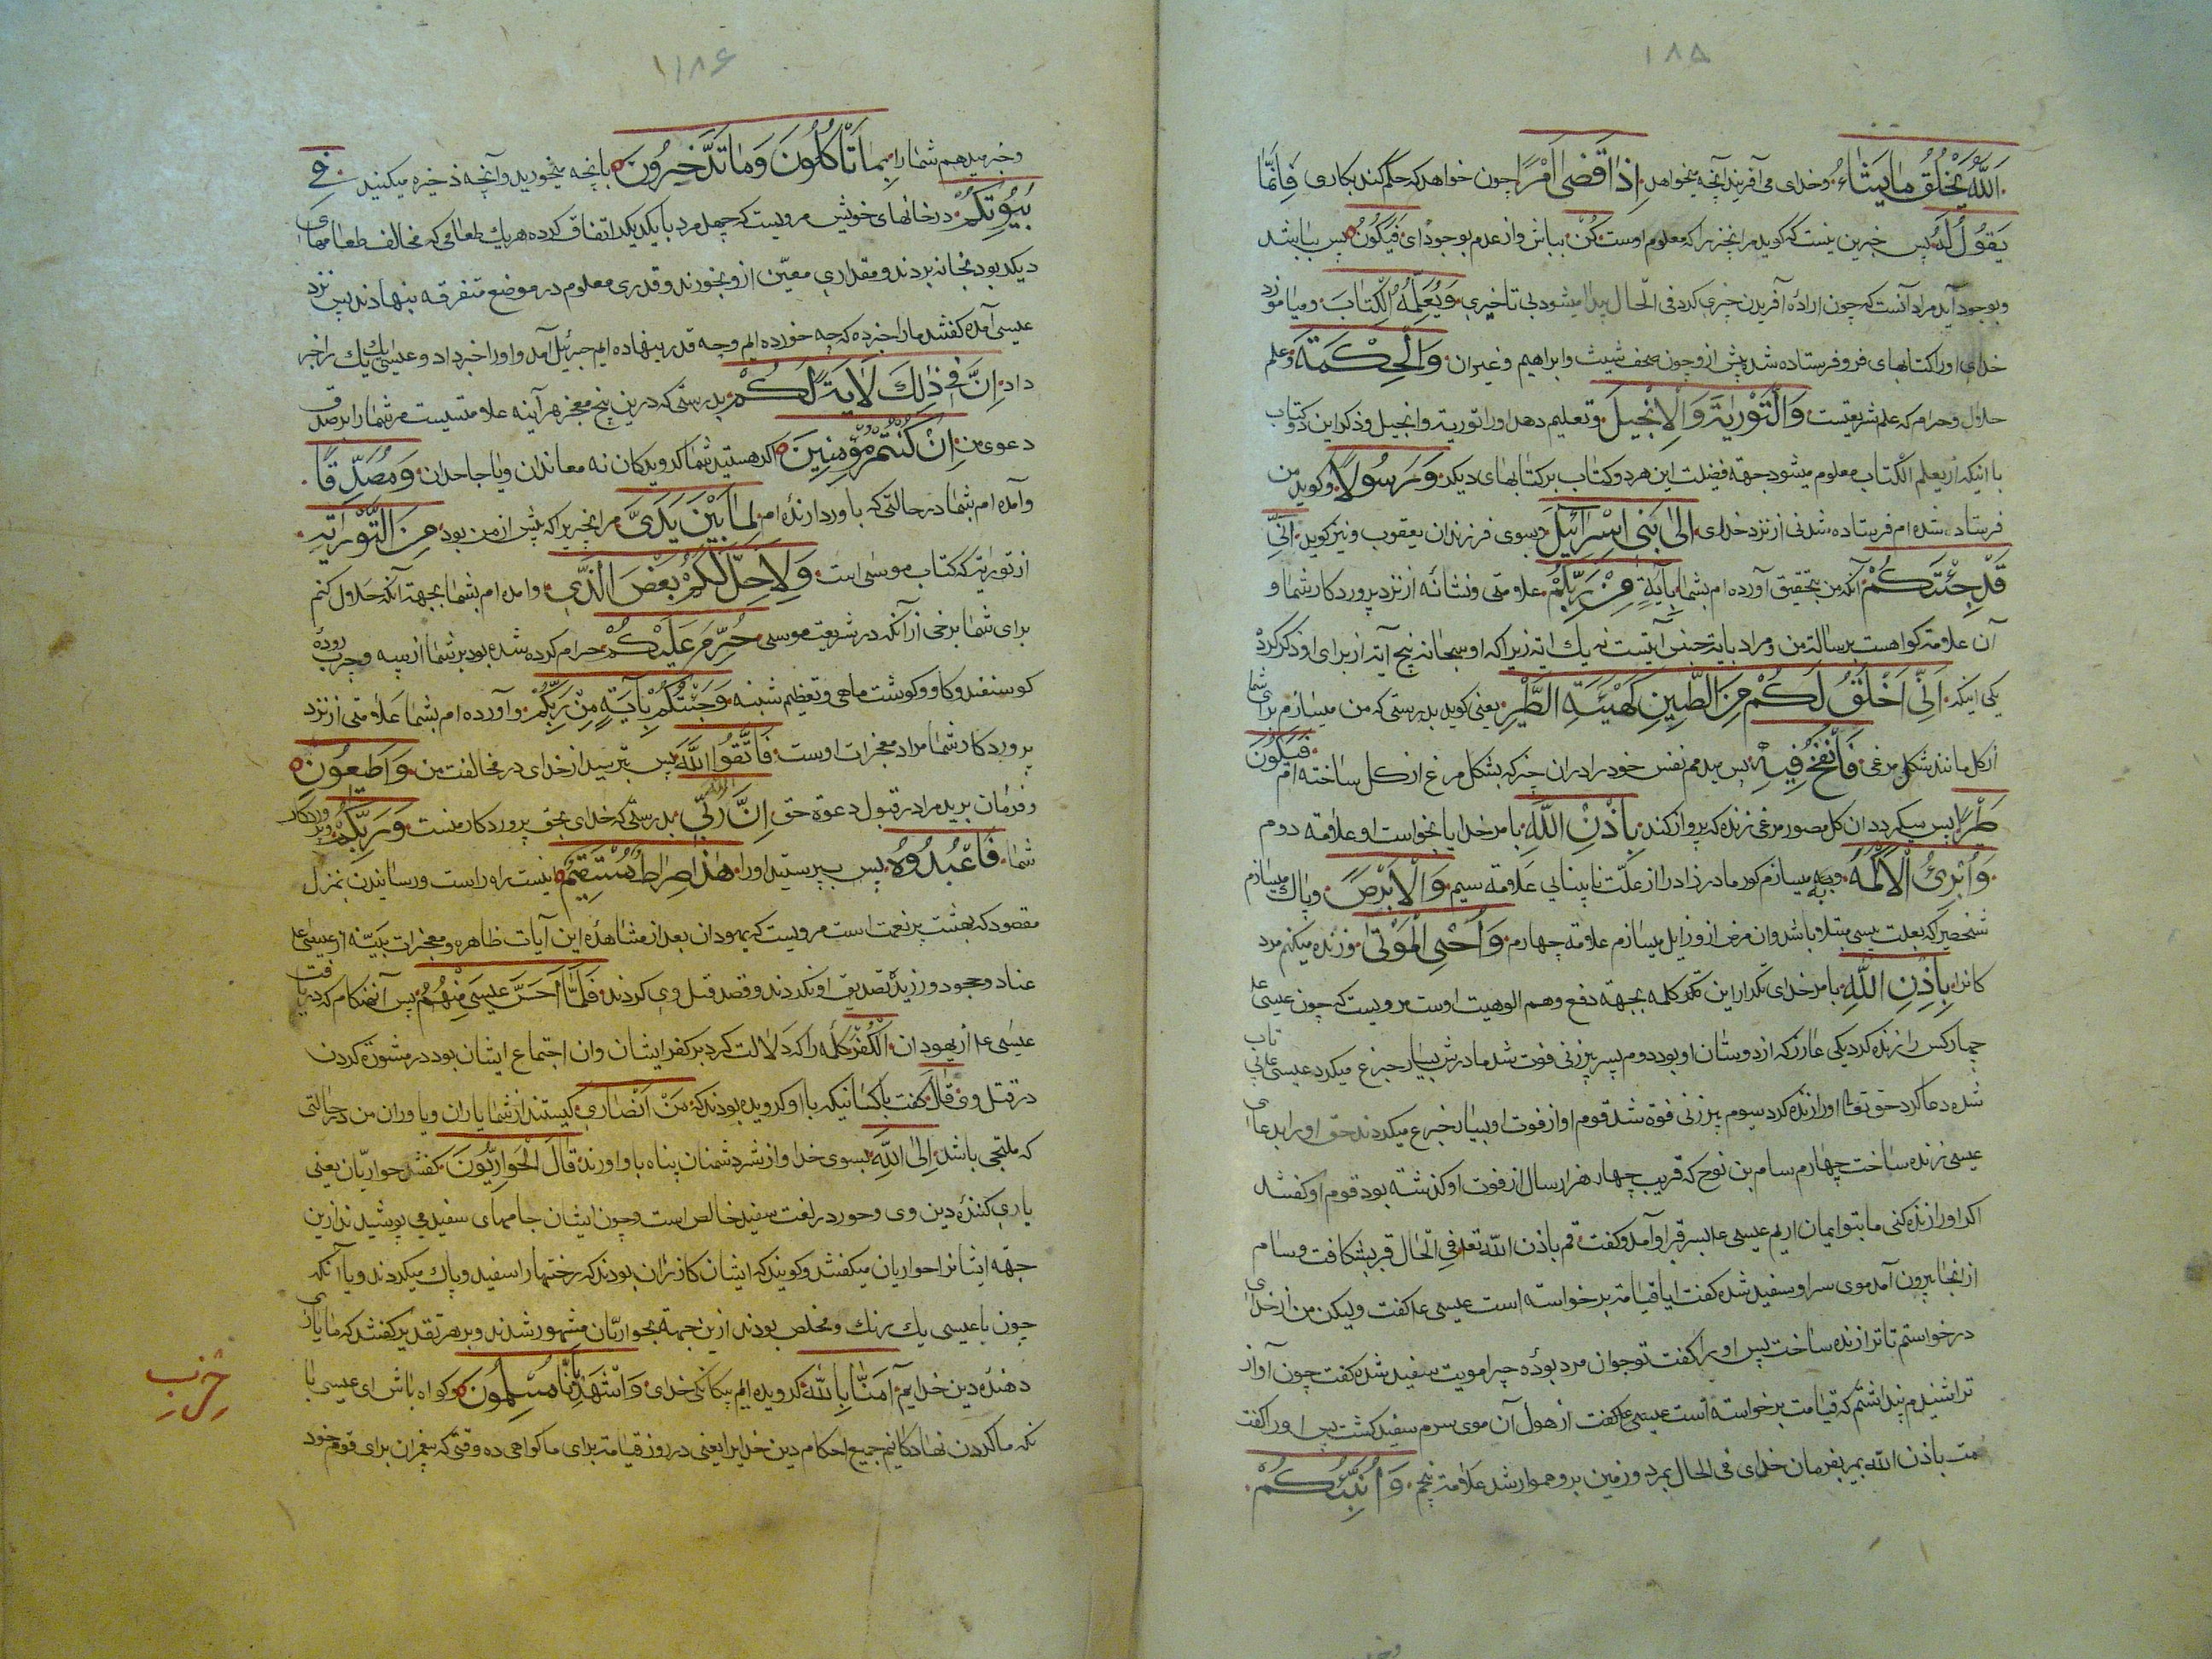 ۱۸۵
اَللّٰهُ يَخْلُقُ مَا يَشَاءُ وخدای می آفریند آنچه میخواهد اِذَا قَضٰى اَمْرًا چون خواهد که حکم کند بکاری فَاِنَّمَا
يَقُولُ لَهُ پس جزین نیست که کوید مر انچیز را که معلوم اوست كُنْ بباش واز عدم بوجود ای فَيَكُونُ پس بباشد
وبوجود آید مراد آنست که چون ارادهٔ آفریدن چیزی کرد فی الحال پیدا میشود بی تاخیری وَيُعَلِّمُهُ الْكِتَابَ ومیاموزد
خدای اورا کتابهای فرو فرستاده شد پیش ازو چون صحف شیث وابراهیم وغیران وَالْحِكْمَةَ وعلم
حلال وحرام که علم شریعتست وَالتَّوْرٰيةَ وَالْاِنْجِيلَ وتعلیم دهد اورا توریة وانجیل وذکر این دو کتاب
با انیکه از یعلم الکتاب معلوم میشود جهة فضیلت این هر دو کتاب بر کتابهای دیکر وَرَسُولًا وکوید من
فرستاده شده ام فرستاده شدنی از نزد خدای اِلٰى بَنِى اِسْرَائِيلَ بسوی فرزندان یعقوب ونیز کوید اَنِّى
قَدْ جِئْتُكُمْ آنکه من بتحقیق آورده ام بشما بِاٰيَةٍ مِنْ رَبِّكُمْ علامتی ونشانهٔ از نزد پروردکار شما و
آن علامة کواهست برسالة من ومراد بایة جنس آیتست نه یك ایة زیرا که او سبحانه پنج آیة از برای او ذکر کرد
یکی اینکه اَنِّى اَخْلُقُ لَكُمْ مِنَ الطِّينِ كَهَيْئَةِ الطَّيْرِ یعنی کوید بدرستی که من میسازم برای شما
از کل مانند شکل مرغی فَاَنْفُخُ فِيهِ پس میدمم نفس خود را دران چیز که بشکل مرغ از کل ساخته ام فَيَكُونُ
طَيْرًا پس میکردد ان کل مصور مرغی زنده که پرواز کند بِاِذْنِ اللّٰهِ بامر خدا یا بخواست او علامة دوم
وَاُبْرِئُ الْاَكْمَهَ وبه میسازم کور مادر زاد را از علّت نابینایی علامة سیم وَالْاَبْرَصَ وپاك میسازم
شخصی را که بعلت پیسی مبتلا باشد وان مرض ازو زایل میسازم علامة چهارم وَاُحْىِ الْمَوْتٰى وزنده میکنم مرد
کانرا بِاِذْنِ اللّٰهِ بامر خدای تکرار این کلمه بجهة دفع وهم الوهیت اوست مرویست که چون عیسی ع
چهار کس را زنده کرد یکی عازر که از دوستان او بود دوم پسر پیرزنی فوت شد مادرش بسیار جزع میکرد عیسی ع بی تاب
شده دعا کرد حق تعالی اورا زنده کرد سیوم پیرزنی فوة شد قوم او از فوت او بسیار جزع میکردند حق اورا بدعای
عیسی زنده ساخت چهارم سام بن نوح که قریب چهار هزار سال از فوت او کذشته بود قوم او کفتند
اکر اورا زنده کنی ما بتو ایمان اریم عیسی ع بسر قبر او آمد وکفت قم باذن اللّه تع فی الحال قبر بشکافت وسام
از انجا بیرون آمد موی سر او سفید شده کفت ایا قیامة برخواسته است عیسی ع کفت ولیکن من از خدای
درخواستم تا ترا زنده ساخت پس اورا کفت تو جوان مرد بودهٔ چرا مویت سفید شده کفت چون آواز
ترا شنیدم پنداشتم که قیامت برخواسته است عیسی ع کفت از هول آن موی سرم سفید کشت پس اورا کفت
مت باذن اللّه بمیر بفرمان خدای فی الحال بمرد وزمین برو هموار شد علامة پنجم وَاُنَبِّئُكُمْ
۱۸۶
وخبر میدهم شما را بِمَا تَأْكُلُونَ وَمَا تَدَّخِرُونَ بانچه میخورید وآنچه ذخیره میکنید فِى
بُيُوتِكُمْ در خانهای خویش مرویست که چهل مرد با یکدیکر اتفاق کرده هر یك طعامی که مخالف طعامهای
دیکر بود بخانه بردند ومقداری معیّن ازو بخورند وقدری معلوم در موضع متفرقه بنهادند پس نزد
عیسی آمده کفتند ما را خبر ده که چه خورده ایم وچه قدر بنهاده ایم جبرئیل آمد واورا خبر داد وعیسی یك یك را خبر
داد اِنَّ فِى ذٰلِكَ لَاٰيَةً لَكُمْ بدرستی که درین پنج معجز هر آینه علامتیست مر شما را بر صدق
دعوی من اِنْ كُنْتُمْ مُؤْمِنِينَ اکر هستید شما کرویدکان نه معاندان ویا جاحدان وَمُصَدِّقًا
وآمده ام بشما در حالتی که باور دارنده ام لِمَا بَيْنَ يَدَىَّ مر انچیز را که پیش از من بود مِنَ التَّوْرٰيةِ
از توریة که کتاب موسی است وَلِاُحِلَّ لَكُمْ بَعْضَ الَّذِى وامده ام بشما بجهة آنکه حلال کنم
برای شما برخی از آنکه در شریعت موسی حُرِّمَ عَلَيْكُمْ حرام کرده شده بود بر شما از پیه وچرب رودهٔ
کوسفند وکاو وکوشت ماهی وتعظیم شنبه وَجِئْتُكُمْ بِاٰيَةٍ مِنْ رَبِّكُمْ وآورده ام بشما علامتی از نزد
پروردکار شما مراد معجزات اوست فَاتَّقُوا اللّٰهَ پس بترسید از خدای در مخالفت من وَاَطِيعُونِ
وفرمان برید مرا در قبول دعوة حق اِنَّ اللّٰهَ رَبِّى بدرستی که خدای بحق پروردکار منست وَرَبُّكُمْ وپروردکار
شما فَاعْبُدُوهُ پس بپرستید اورا هٰذَا صِرَاطٌ مُسْتَقِيمٌ اینست راه راست ورسانیدن بمنزل
مقصود که بهشت پر نعمت است مرویست که یهودان بعد از مشاهدهٔ این آیات ظاهره ومعجزات بیّنه از عیسی ع
عناد وجحود ورزیده تصدیق او نکردند وقصد قتل وی کردند فَلَمَّا اَحَسَّ عِيسٰى مِنْهُمُ پس آنهنکام که دریافت
عیسی ع از یهودان الْكُفْرَ کلمه را که دلالت کرد بر کفر ایشان وان اجتماع ایشان بود در مشورة کردن
در قتل وی قَالَ کفت با کسانیکه با او کرویده بودند که مَنْ اَنْصَارِى کیستند از شما یاران ویاوران من در حالتی
که ملتجی باشد اِلَى اللّٰهِ بسوی خدا واز شر دشمنان پناه باو اورند قَالَ الْحَوَارِيُّونَ کفتند حواریّان یعنی
یاری کنندهٔ دین وی وحور در لغت سفید خالص است وچون ایشان جامهای سفید می پوشیدند ازین
جهة ایشانرا حواریان میکفتند وکویند که ایشان کازران بودند که رختها را سفید وپاك میکردند ویا آنکه
چون با عیسی یك رنك ومخلص بودند ازین جهة بحواریّان مشهور شدند وبر هر تقدیر کفتند که ما یاری
دهندهٔ دین خداییم اٰمَنَّا بِاللّٰهِ کرویده ایم بیکانکی خدای وَاشْهَدْ بِاَنَّا مُسْلِمُونَ وکواه باش ای عیسی با
نکه ما کردن نهادکانیم جمیع احکام دین خدایرا یعنی در روز قیامة برای ما کواهی ده وقتی که پیغمبران برای قوم خود